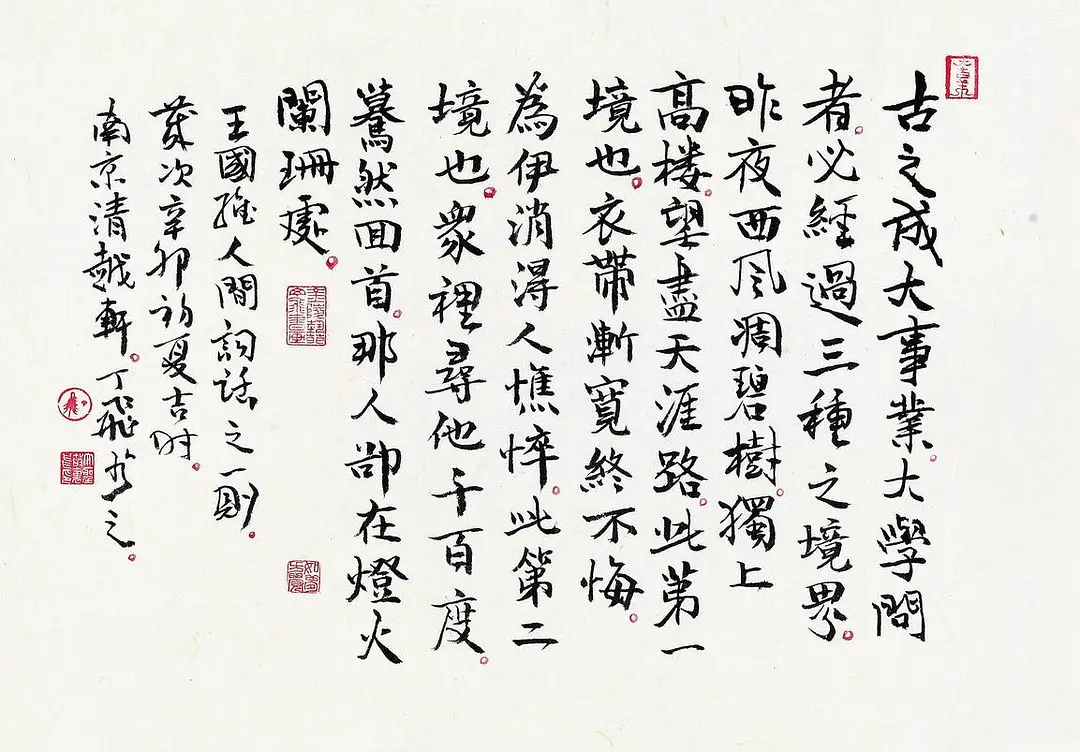 古之成大事業。大學問
者。必經過三種之境界。
昨夜西风凋碧樹。獨上
高楼。望盡天涯路。此第一
境也。衣帶漸寬終不悔。
為伊消得人憔悴。此第二
境也。衆裡尋他千百度。
驀然回首。那人卻在燈火
闌珊處。
王國維人間詞話之一則。
歲次辛卯初夏吉时。
南京清越軒。丁飛
之。